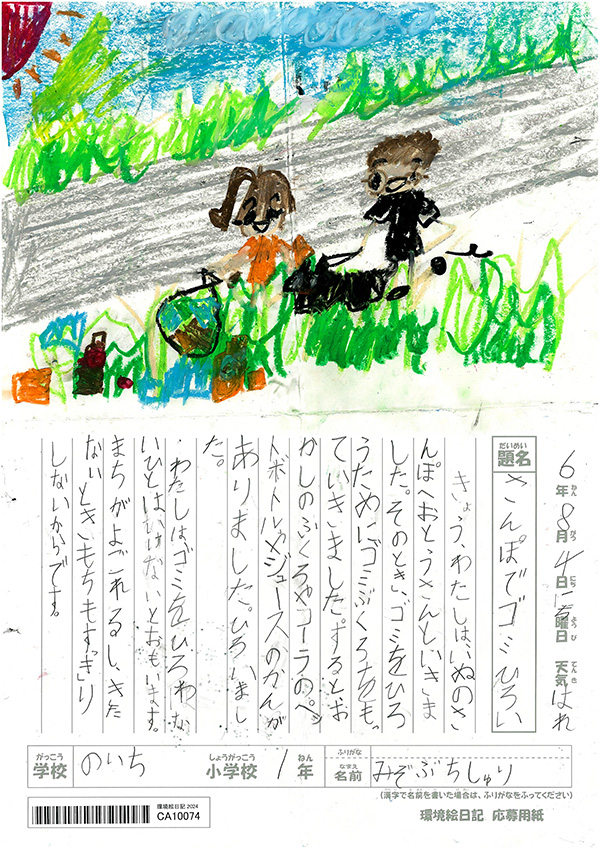 6年8月4日日曜日 天気はれ
題名 さんぽでゴミひろい
きょう、わたしは、いぬのさ
んぽへおとうさんといきま
した。そのとき、ゴミをひろ
うためにゴミぶくろをもっ
ていきました。するとお
かしのふくろやコーラのペッ
トボトルやジュースのかんが
ありました。ひろいまし
た。
・わたしはゴミをひろわな
いひとはいけないとおもいます。
まちがよごれるし、きた
ないときもちもすっきり
しないからです。
がっこう
学校 のいち
しょうがっこう
小学校 1年
ねん
ふりがな
なまえ
名前 みぞぶちしゅり
(漢字で名前を書いた場合は、ふりがなをふってください)
環境絵日記 2024
CA10074
環境絵日記 応募用紙